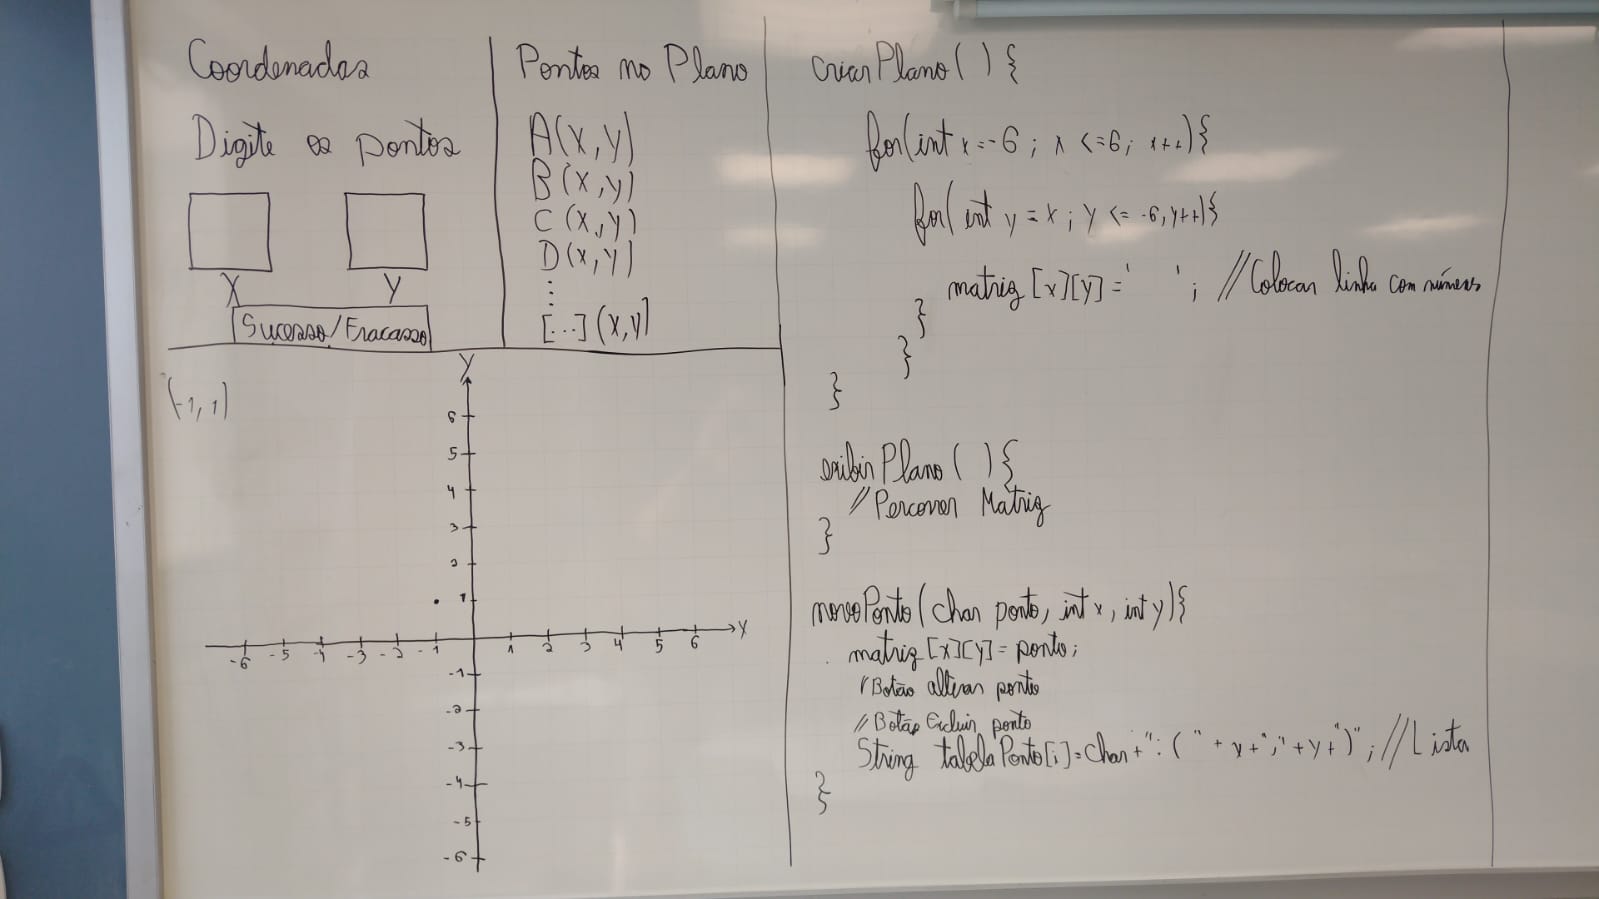 Coordenadas
Digite os pontos
X Y
Sucesso/Fracasso
Pontos no Plano
A(x,y)
B(x,y)
C(x,y)
D(x,y)
⋮
[...](x,y)
(-1,1)
Y
6
5
4
3
2
1
-6 -5 -4 -3 -2 -1 1 2 3 4 5 6 X
-1
-2
-3
-4
-5
-6
criarPlano( ){
for(int x=-6; x<=6; x++){
for(int y=x; y<=-6, y++){
matriz[x][y]=' '; //Colocar linha com números
}
}
}
exibirPlano( ){
//Percorrer Matriz
}
novoPonto(char ponto, int x, int y){
matriz[x][y]=ponto;
//Botão alterar ponto
//Botão Excluir ponto
String tabelaPonto[i]=char+": ( "+x+";"+y+")"; //Lista
}